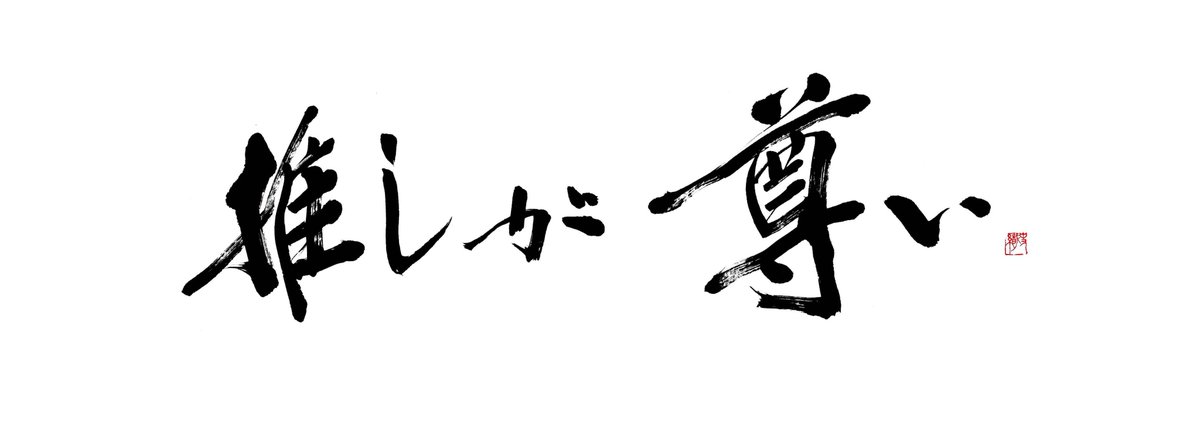 推しが尊い